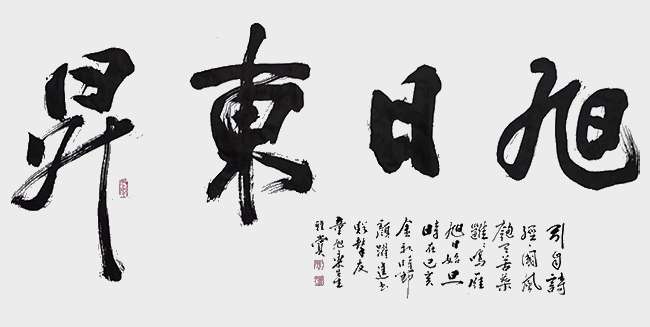 旭日東昇
引自詩
經·國風
匏有苦葉
雝雝鳴雁
旭日始旦
時在己亥
金秋時節
顏躍進書
摯友
童旭東先生
雅賞